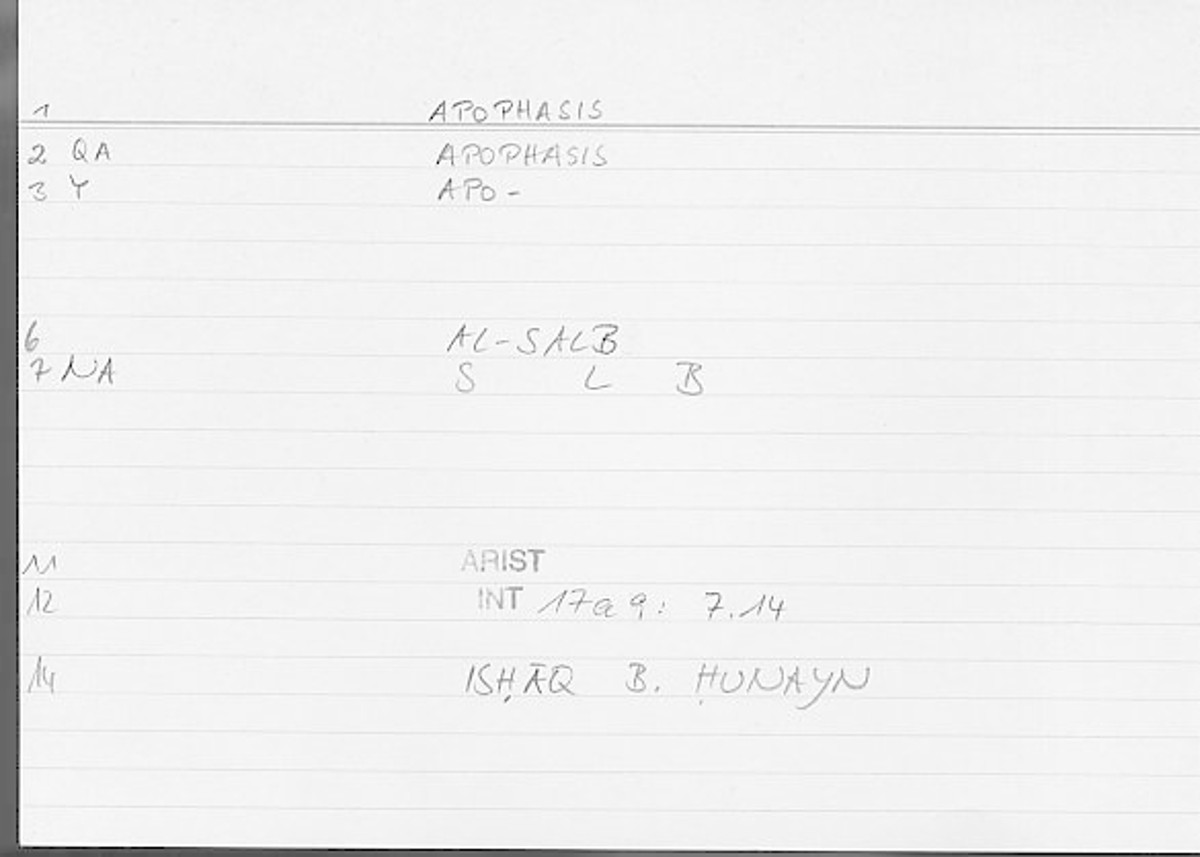 1 APOPHASIS
2 QA APOPHASIS
3 Y APO-
6 AL-SALB
7 NA S L B
11 ARIST
12 INT 17a9: 7.14
14 ISḤĀQ B. ḤUNAYN